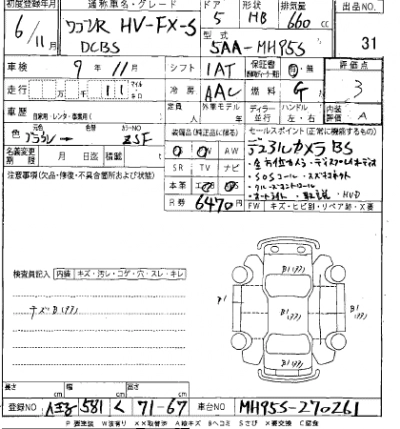 初度登録年月 通称車名・グレード ドア 形状 排気量 出品NO.
6/11月 ワゴンR HV-FX-S 5 HB 660 cc 31
DCBS 型式 5AA-MH95S
車検 9年 11月 シフト 1AT 保証書 有・無 評価点
走行 万 千 11 マイル キロ 冷房 AAC 燃料 G 3
車歴 自家用・レンタ・事業用( 定員 人 外車モデル 年 ディーラー 並行 ハンドル 左・右 内装評価 A
色 元色 色替 カラーNO ZSF 装備品(純正品に限る) セールスポイント(正常に機能するもの)
名義変更期限 月 日迄 積載 t AW デュアルカメラBS
SR TV ナビ ・全方位モニタ・ディスプレイオーディオ
注意事項(欠品・修復・不具合箇所および状態) ・SOSコール・スズキコネクト
本革 エアB PS ・クルーズコントロール
・オートライト ・HUD
R券 6470円 FW キズ・ヒビ割・リペア跡・X要
検査員記入 内装 キズ・汚レ・コゲ・穴・スレ・キレ
長さ cm 幅 cm 高さ cm
登録NO 八王子 581 く 71-67 車台NO MH95S-270261
P 要塗装 W波有り XX取替済 A線キズ Bヘコミ Sサビ X要交換 C腐食